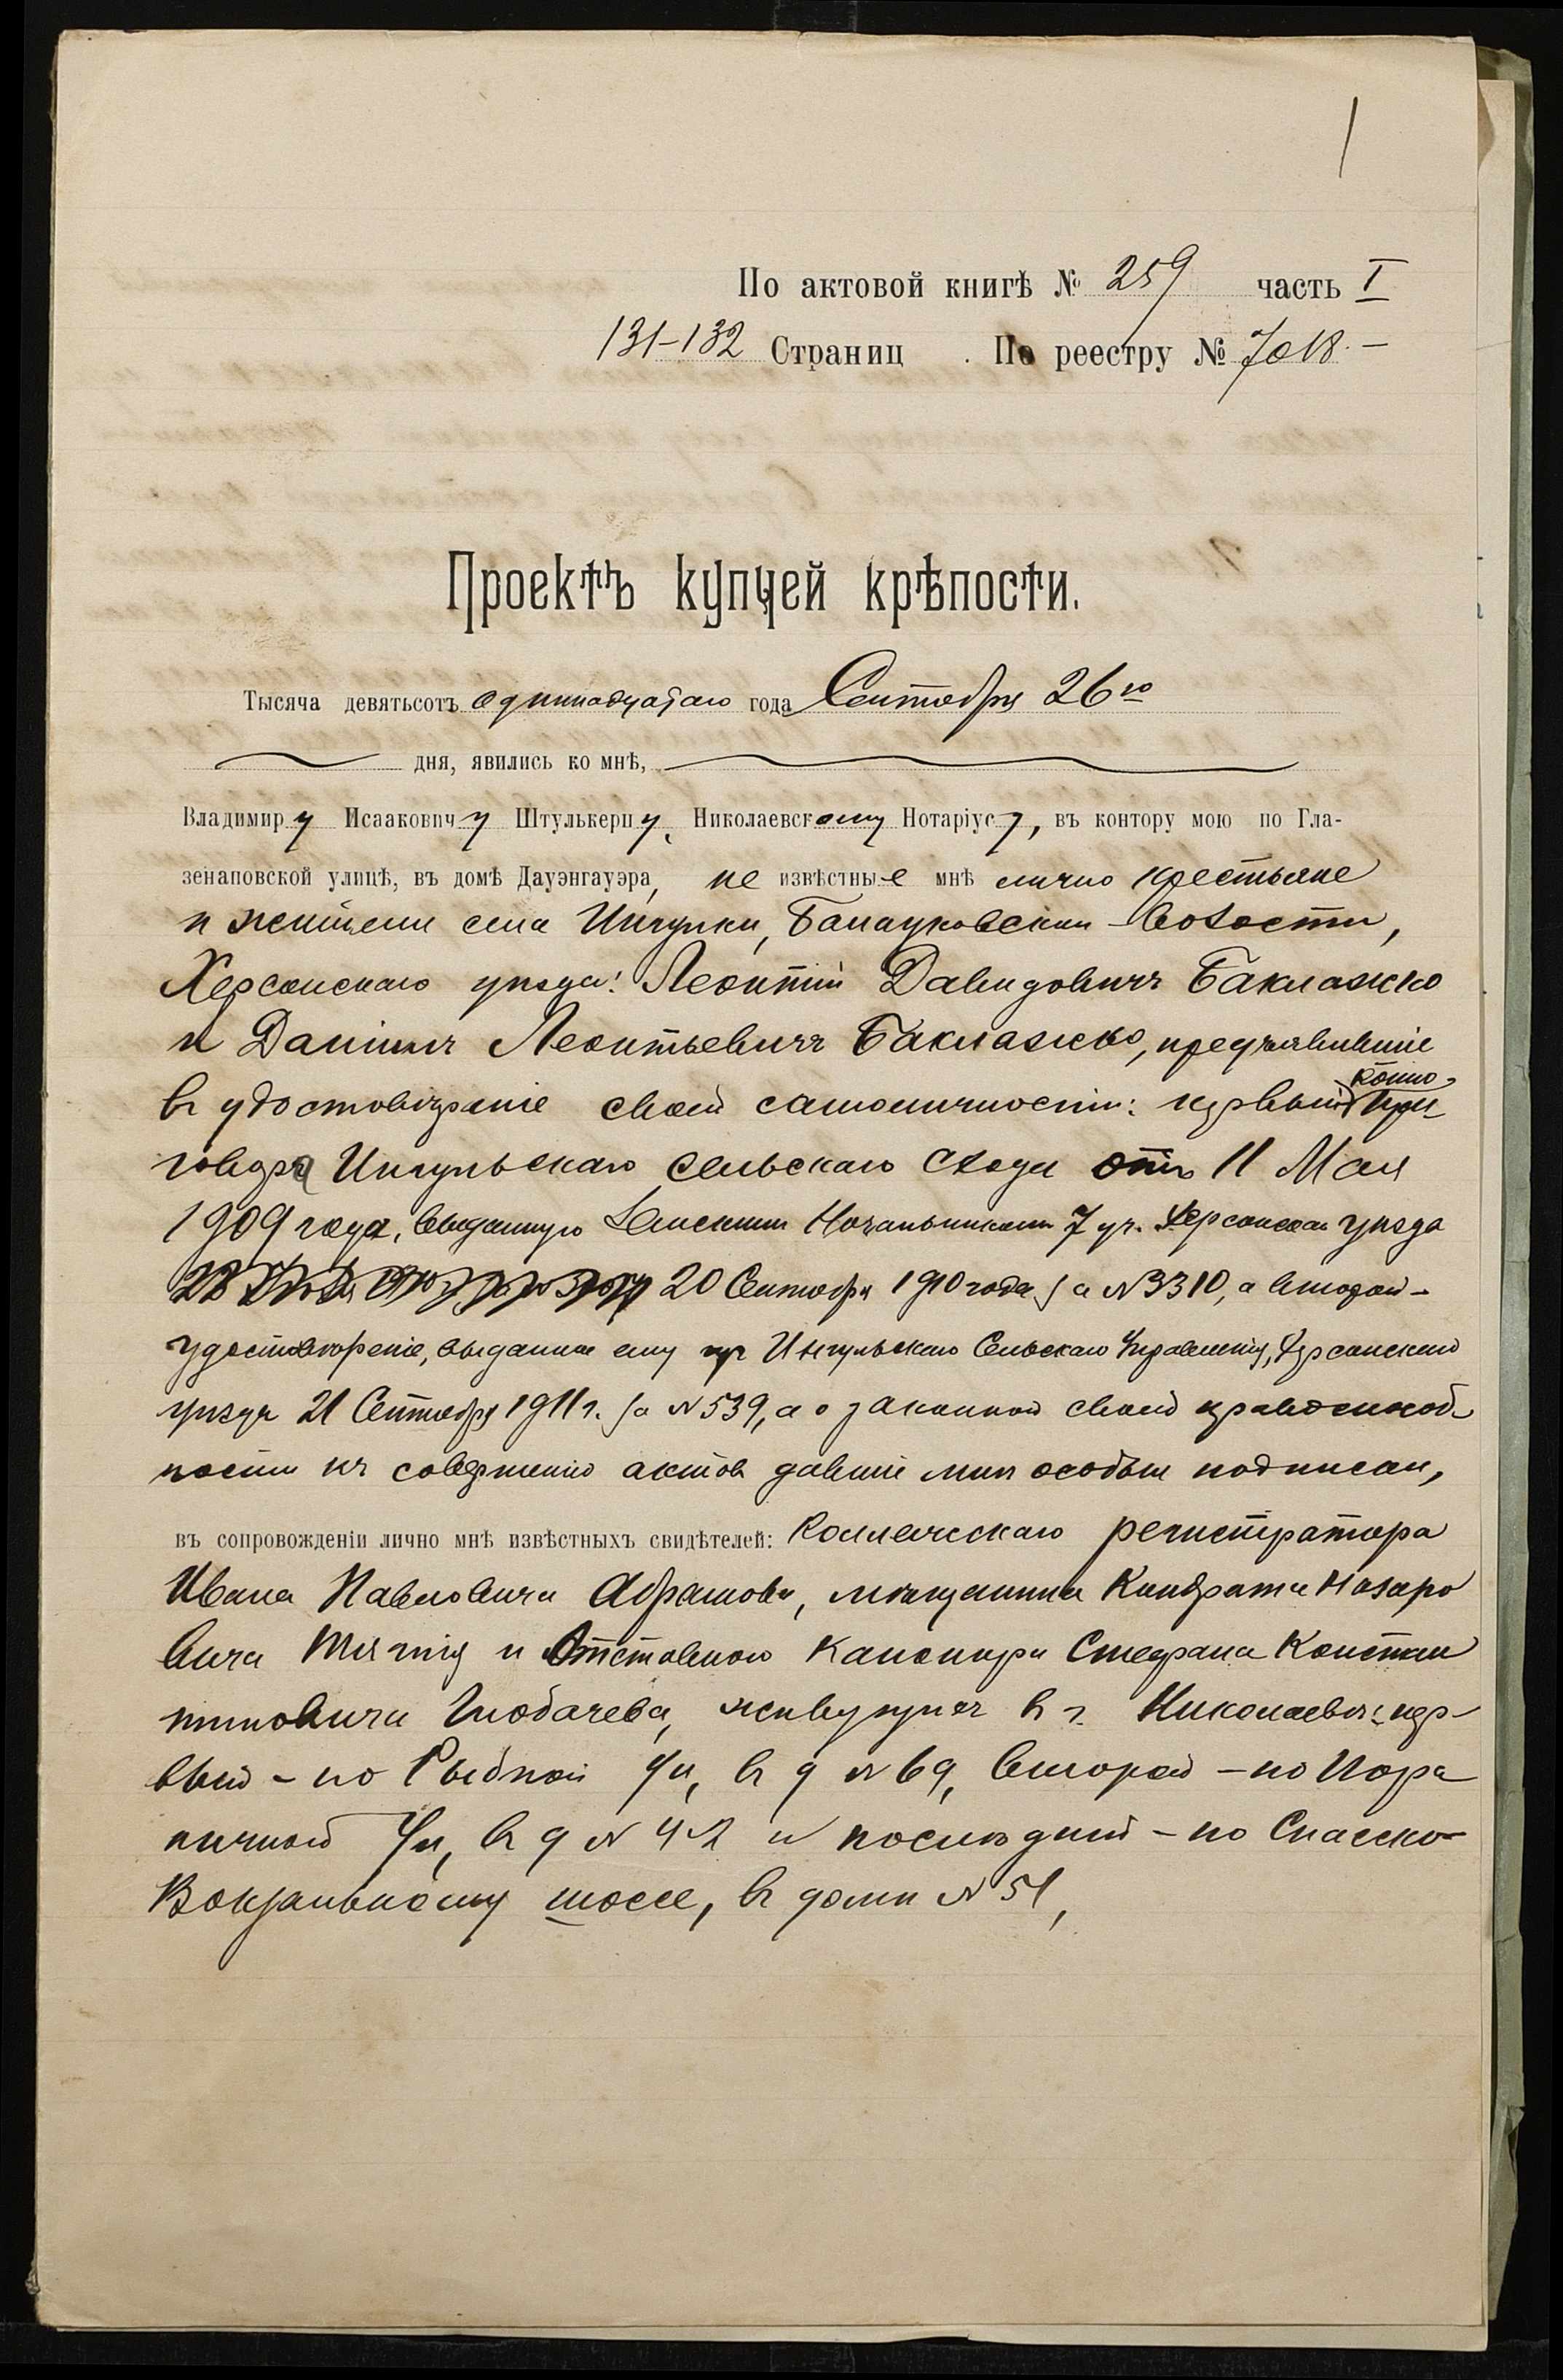 1
По актовой книгѣ № 259 часть I
131-132 Страниц . По реестру № 7018. -
Проектъ купчей крѣпости.
Тысяча девятьсотъ одиннадцатаго года Сентября 26го
дня, явились ко мнѣ,
Владимиру Исааковичу Штулькерцу, Николаевскому Нотаріусу, въ контору мою по Гла-
зенаповской улицѣ, въ домѣ Дауэнгауэра, не извѣстные мнѣ лично крестьяне
и жители села Ингулки, Волости,
Херсонскаго уѣзда: Леонтій Давидовичъ Баклажко
и Даніилъ Леонтьевичъ Баклажко, предъявившіе
въ удостовѣреніе своей самоличности: первый копію
приговора Ингульскаго сельскаго схода отъ 11 Мая
1909 года, выданную Земскимъ Начальникомъ 7 уч. Херсонскаго уѣзда
20 Сентября 1910 года за № 3310, а второй -
удостовѣреніе, выданное ему изъ Ингульскаго Сельскаго Управленія, Херсонскаго
уѣзда 21 Сентября 1911 г. за № 539, а о законной своей правоспособ-
ности къ совершенію актовъ давшіе мнѣ особые подписки,
въ сопровожденіи лично мнѣ извѣстныхъ свидѣтелей: Коллежскаго регистратора
Ивана Павловича Абрамова, мѣщанина Кондрата Назаро
вича и Отставного Канонира Стефана Констан
тиновича Глобачева, живущихъ въ г. Николаевѣ: пер-
вый - по Рыбной ул, въ д № 69, второй - по Погра
ничной ул, въ д № 42 и послѣдній - по Спасско-
Вокзальному шоссе, въ домѣ № 51,